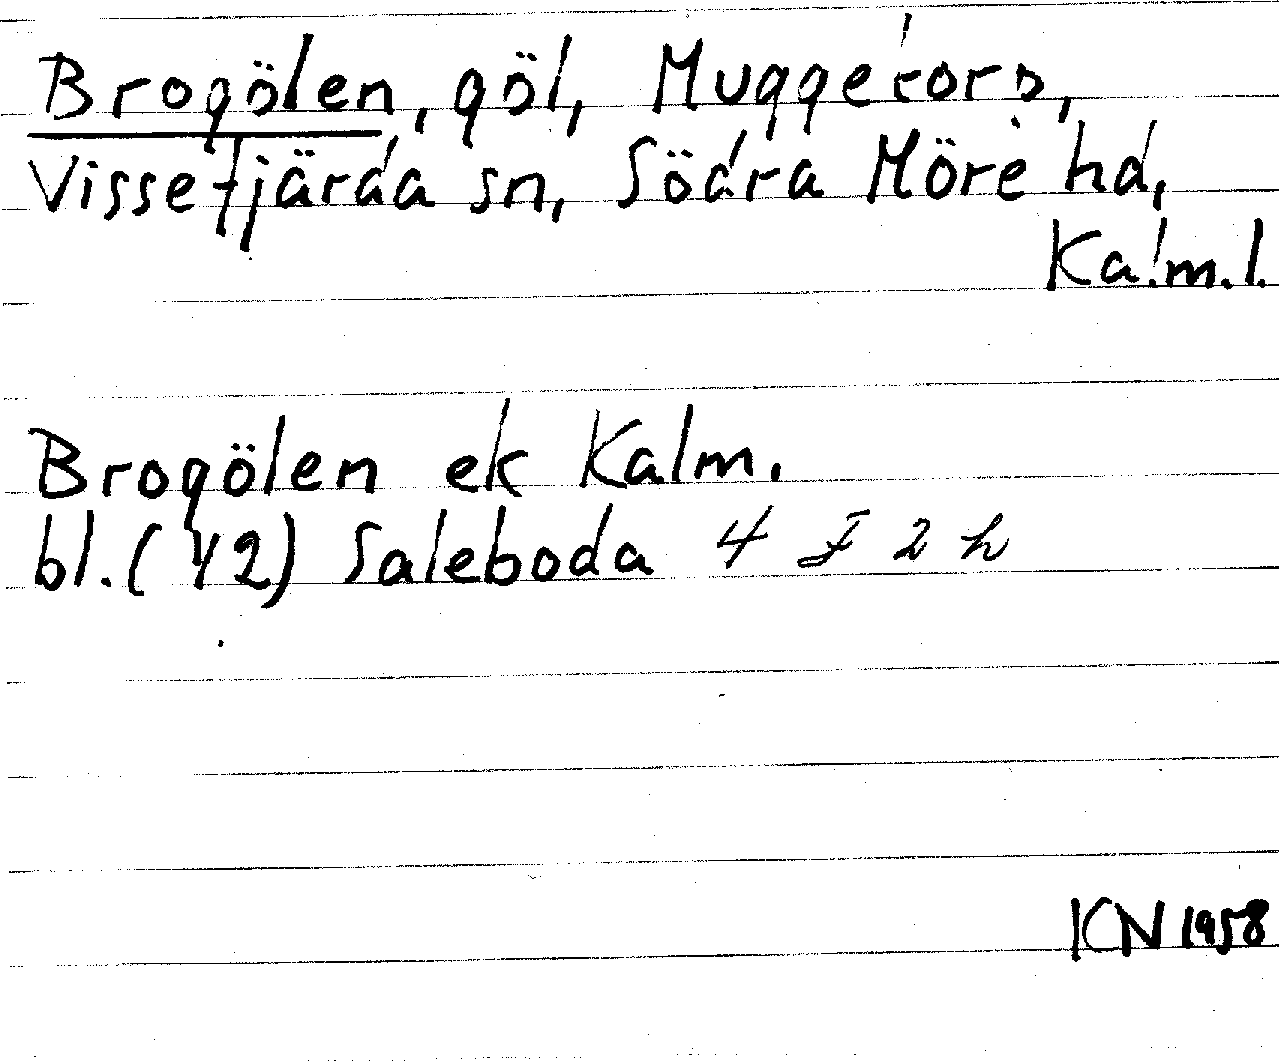 Brogölen, göl, Muggetorp,
Vissefjärda sn, Södra Möre hd,
Kalm.l.
Brogölen ek Kalm.
bl. (12) Saleboda 4 F 2 h
KN 1958